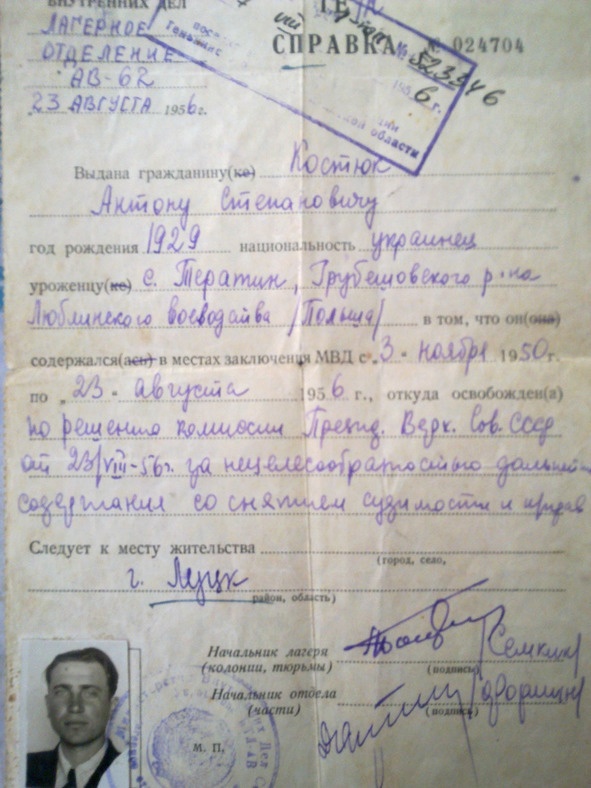 ВНУТРЕННИХ ДЕЛ
ЛАГЕРНОЕ
ОТДЕЛЕНИЕ
АВ-62
"23 АВГУСТА 1956г.
СПРАВКА № 024704
№ 523946
1956 г.
области
Выдана гражданину(ке) Костюк
Антону Степановичу
год рождения 1929 национальность украинец
уроженцу(ке) с. Тератин, Грубешовского р-на
Люблинского воеводства /Польша/ в том, что он(она)
содержался(ась) в местах заключения МВД с „3" ноября 1950г.
по „23" августа 1956 г., откуда освобожден(а)
по решению комиссии Презид. Верх. Сов. СССР
от 23/VIII-56г. за нецелесообразностью
содержания со снятием судимости и
Следует к месту жительства
(город, село,
г. Луцк
район, область)
Начальник лагеря
(колонии, тюрьмы)
(подпись)
Начальник отдела
(части)
(подпись)
М. П.